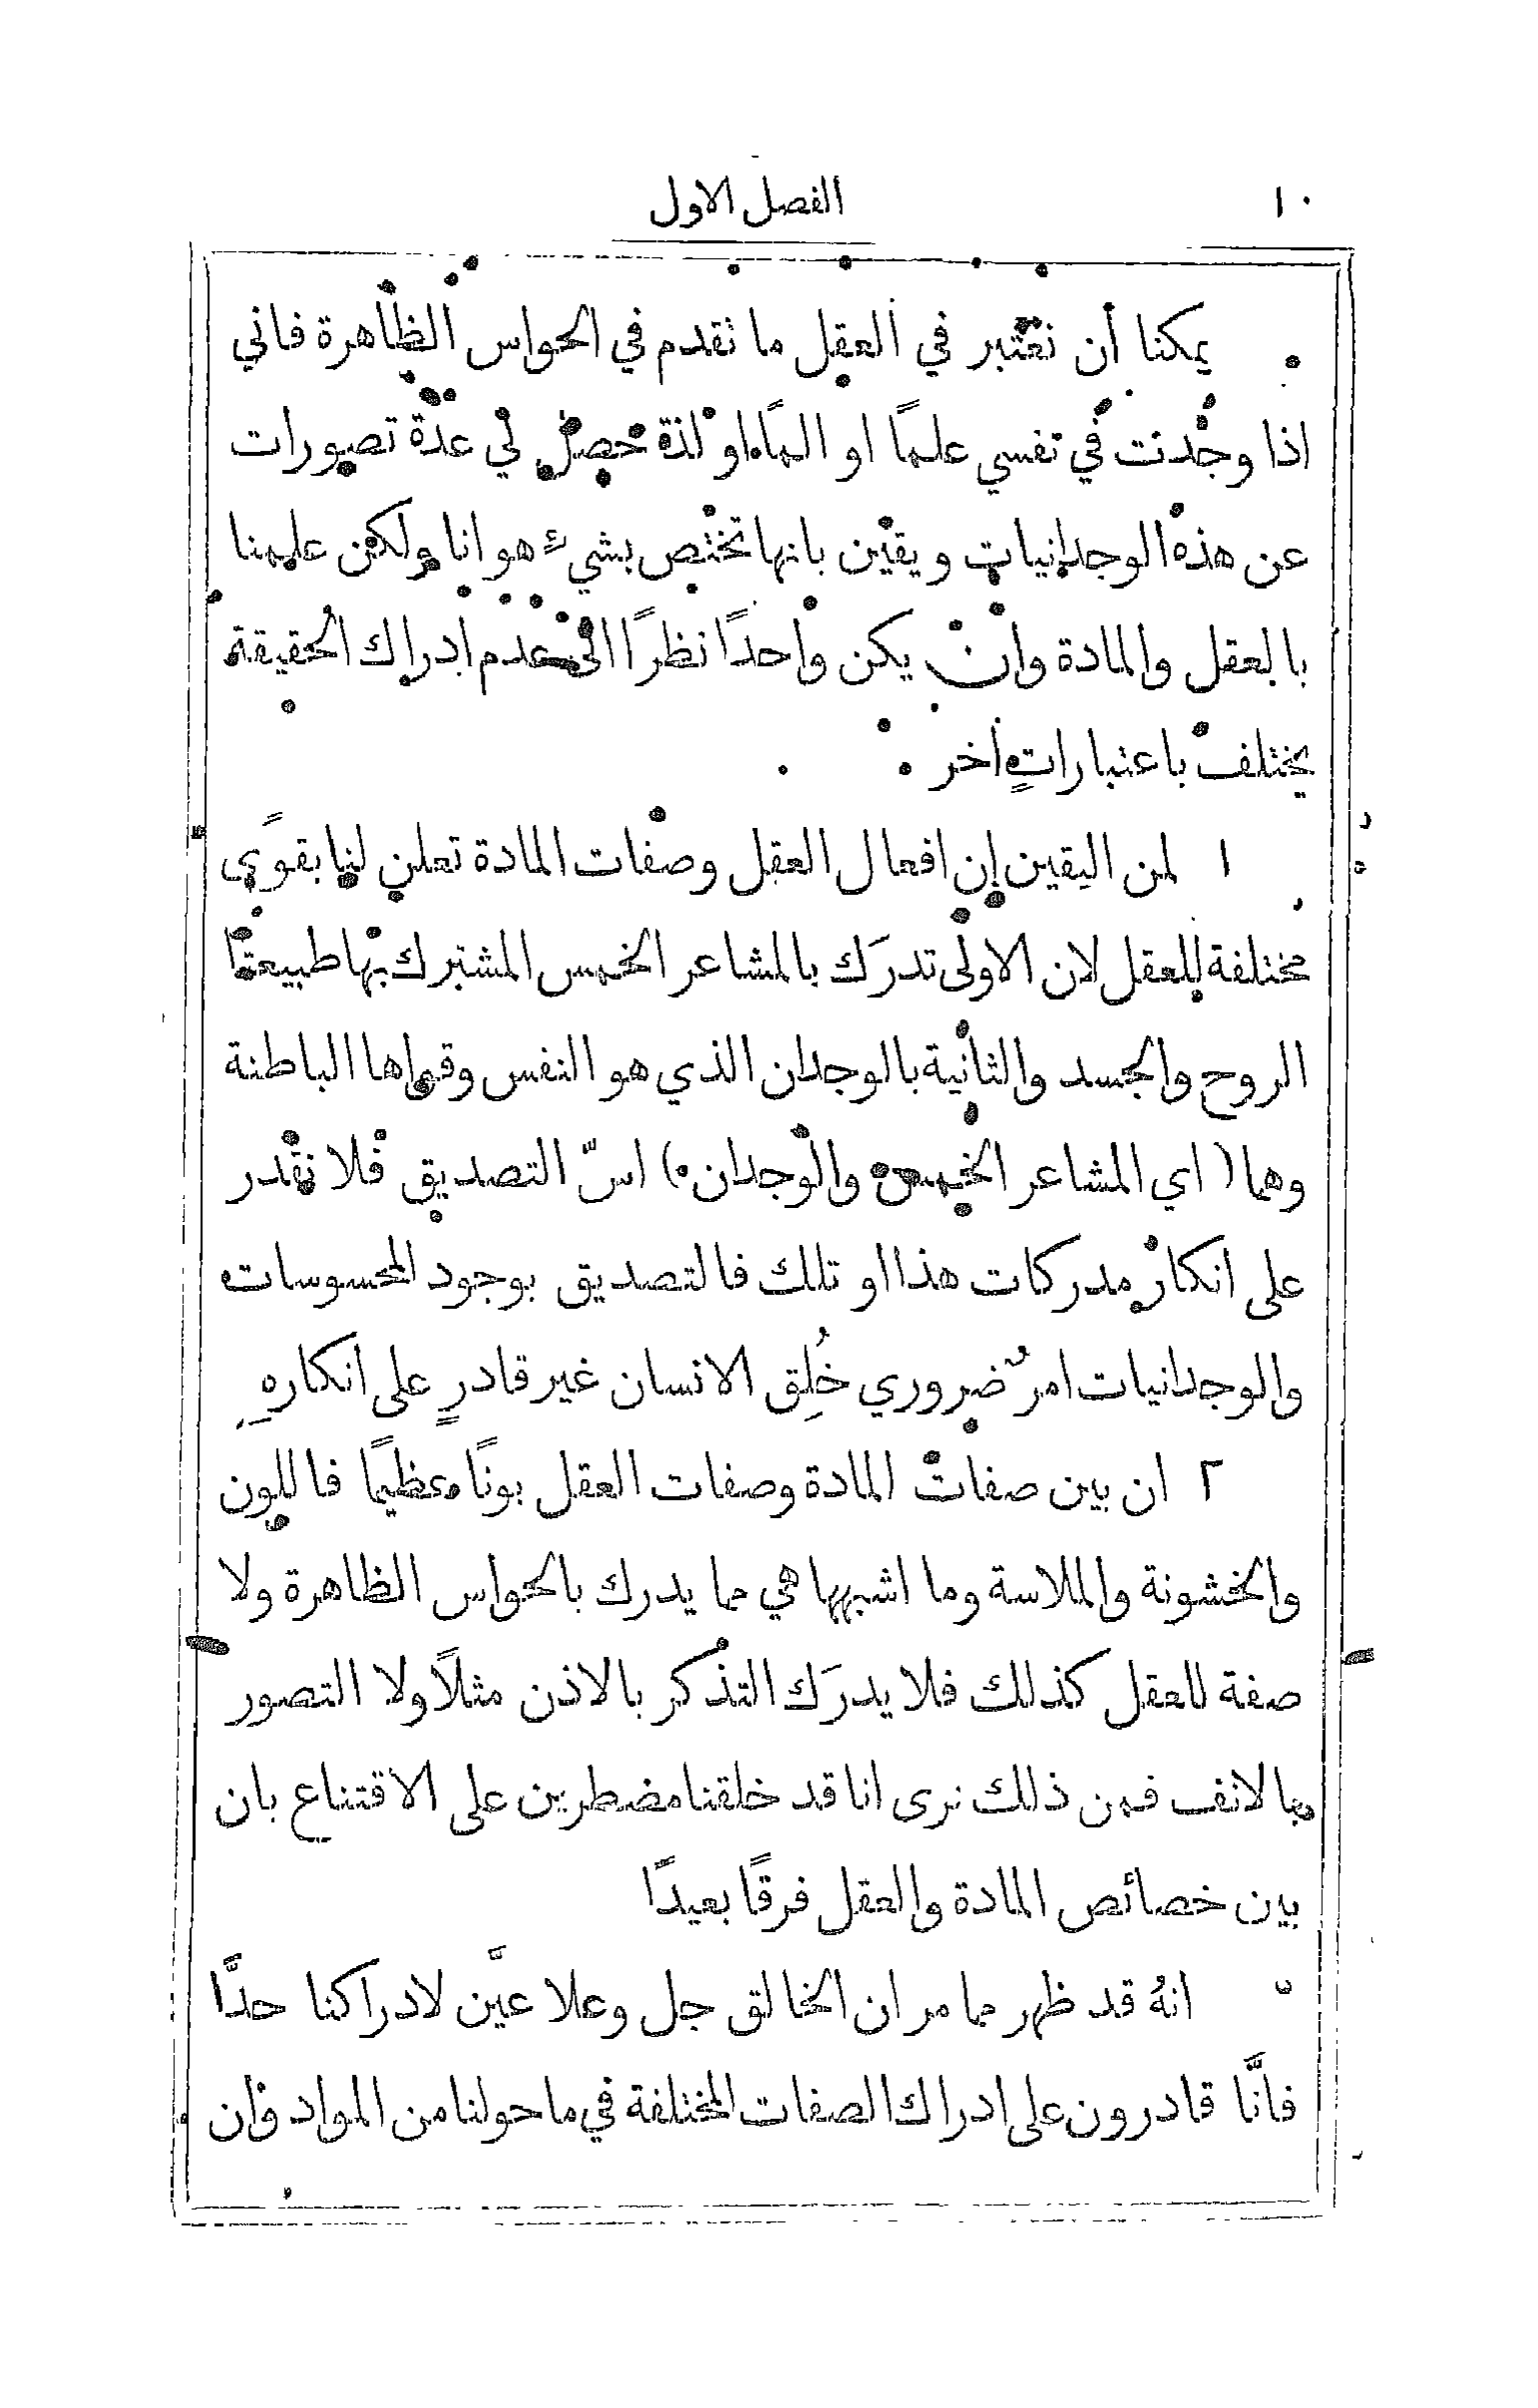 ١٠
الفصل الاول
يمكنا أن نعتبر في العقل ما نقدم في الحواس الظاهرة فاني
اذا وجدت في نفسي علمًا او المًا او لذة حصل لي عدة تصورات
عن هذه الوجدانيات ويقين بانها تختص بشيءٍ هو انا ولكن علمنا
بالعقل والمادة وان يكن واحدًا نظرًا الى عدم ادراك الحقيقة
يختلف باعتباراتٍ اخر
١ لمن اليقين إن افعال العقل وصفات المادة تعلن لنا بقوًى
مختلفة للعقل لان الاولى تدرَك بالمشاعر الخمس المشترك بها طبيعتا
الروح والجسد والثانية بالوجدان الذي هو النفس وقواها الباطنة
وهما (اي المشاعر الخمس والوجدان) اسّ التصديق فلا نقدر
على انكار مدركات هذا او تلك فالتصديق بوجود المحسوسات
والوجدانيات امرٌ ضروري خُلِق الانسان غير قادرٍ على انكارهِ
٢ ان بين صفات المادة وصفات العقل بونًا عظيمًا فاللون
والخشونة والملاسة وما اشبهها هي مما يدرك بالحواس الظاهرة ولا
صفة للعقل كذلك فلا يدرَك التذكر بالاذن مثلاً ولا التصور
بالانف فمن ذلك نرى انا قد خلقنا مضطرين على الاقتناع بان
بين خصائص المادة والعقل فرقًا بعيدًا
انهُ قد ظهر مما مر ان الخالق جل وعلا عيَّن لادراكنا حدًّا
فانَّا قادرون على ادراك الصفات المختلفة في ما حولنا من المواد وان